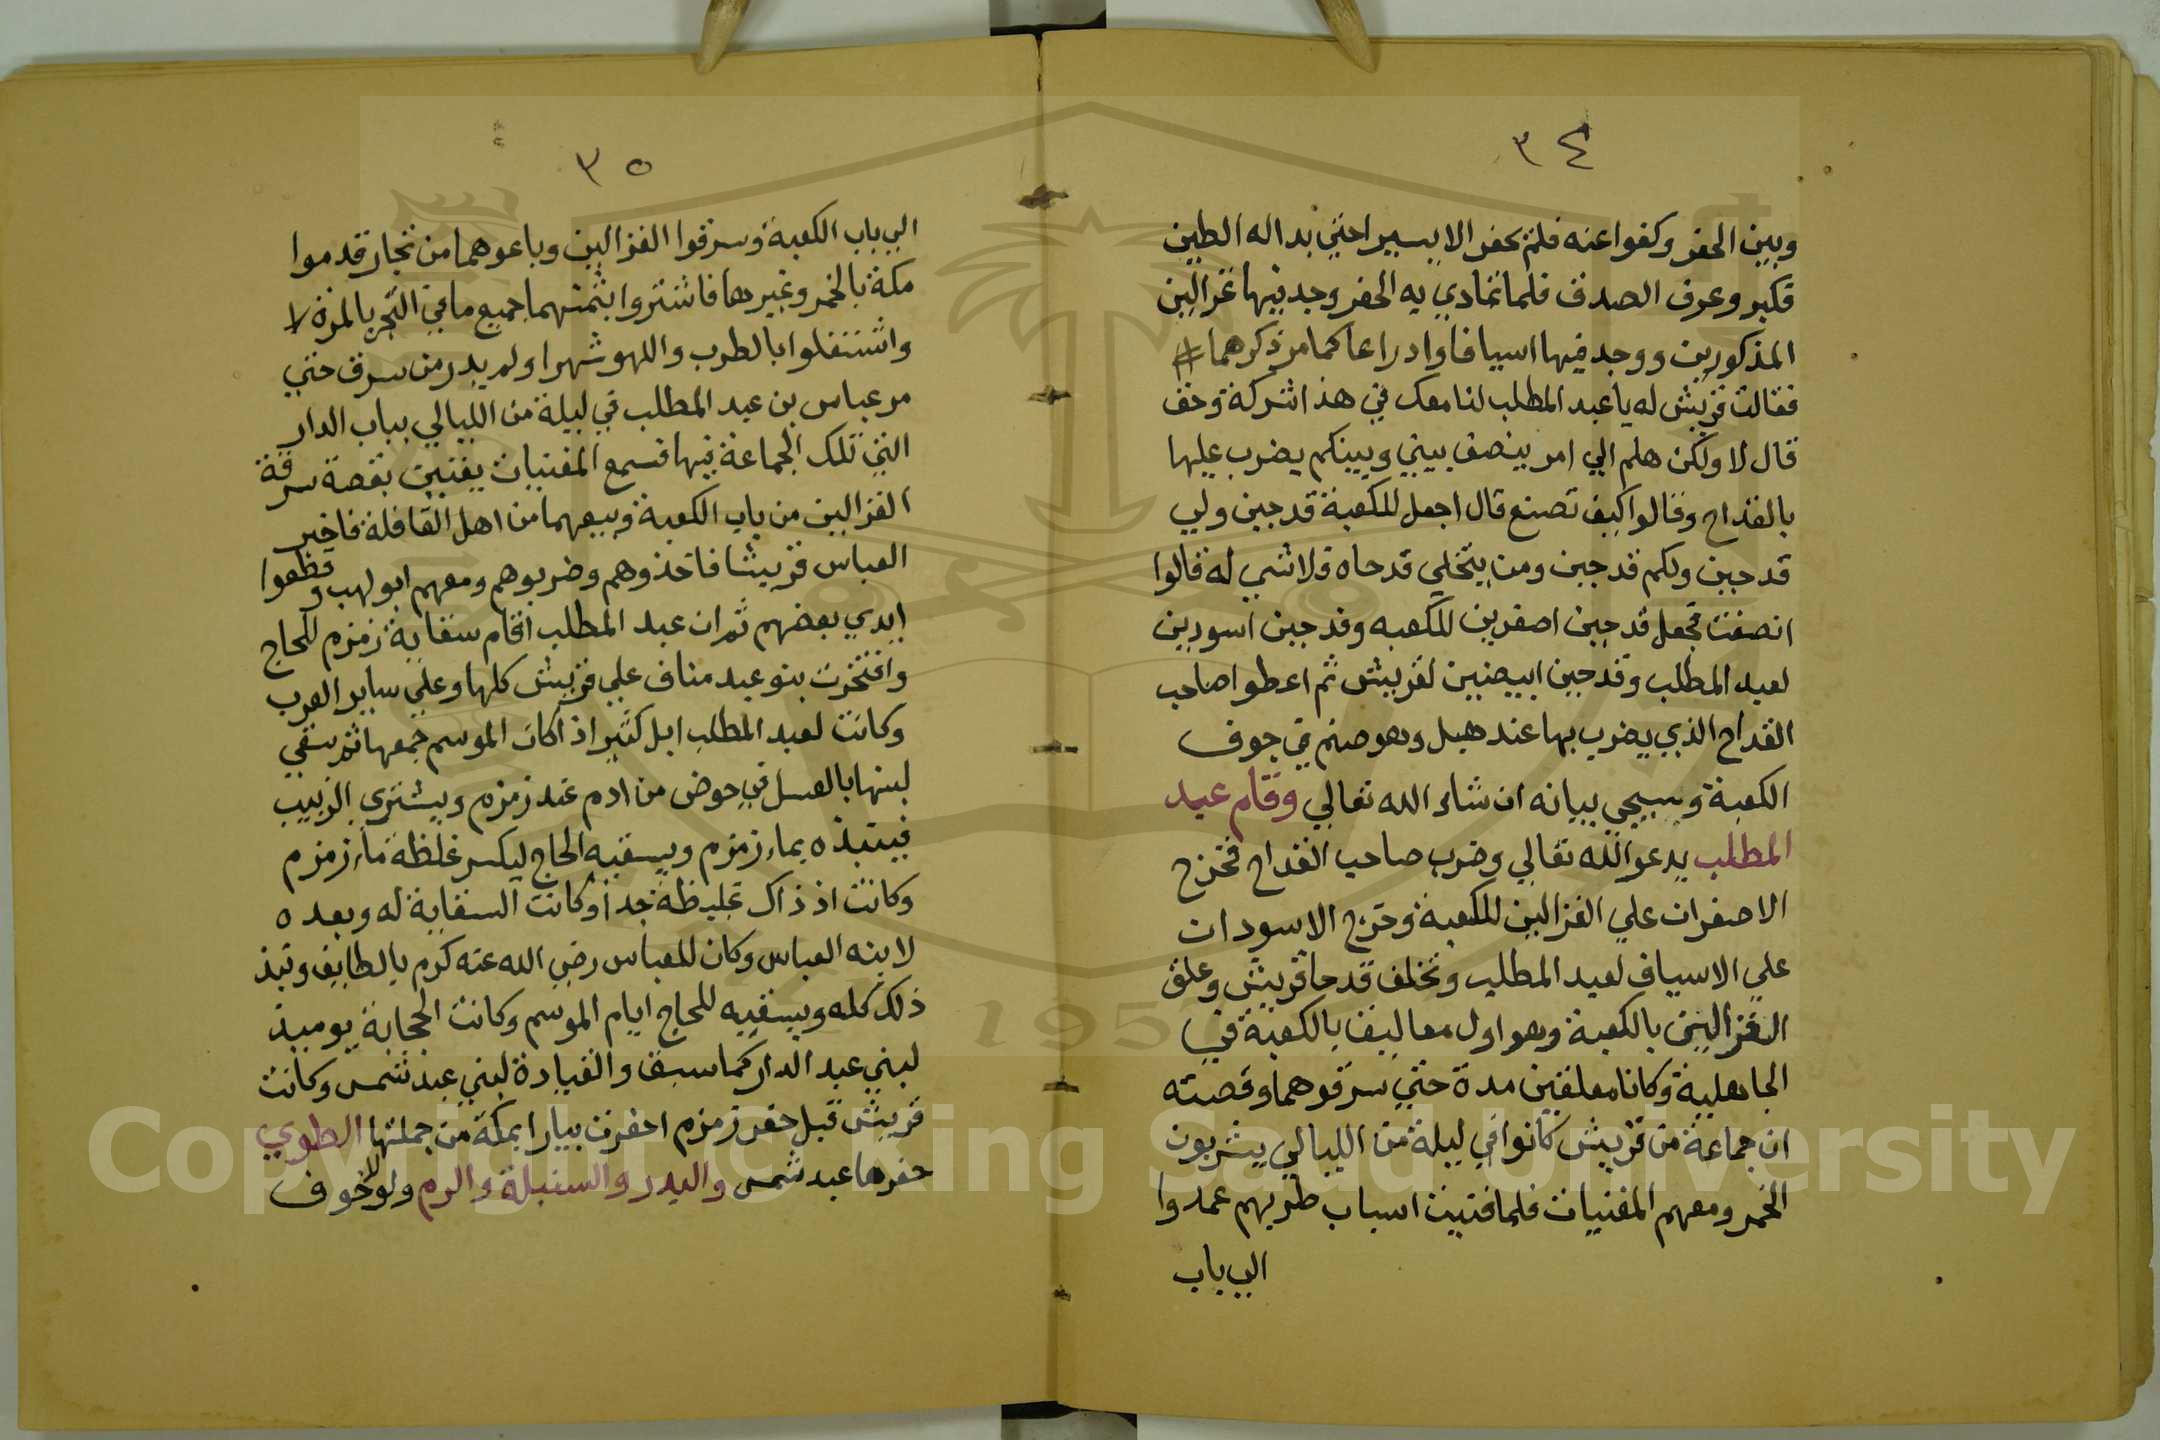 ٣٤
وبين الحفر وكفوا عنه فلم يحفر الا يسيرا حتي بدا له الطين
فكبر وعرف الصدق فلما تمادي به الحفر وجد فيها غزالين
المذكورين ووجد فيها اسيافا وادراعا كما مر ذكرهما
فقالت قريش له يا عبد المطلب لنا معك في هذا شركة وحق
قال لا ولكن هلم الي امر ينصف بيني وبينكم يضرب عليها
بالقداح وقالوا كيف تصنع قال اجعل للكعبة قدحين ولي
قدحين ولكم قدحين ومن يتخلي قدحاه فلا شي له قالوا
انصفت فجعل قدحين اصفرين للكعبه وقدحين اسودين
لعبد المطلب وقدحين ابيضين لقريش ثم اعطوا صاحب
القداح الذي يضرب بها عند هبل وهو صنم في جوف
الكعبة وسيجي بيانه ان شاء الله تعالي وقام عبد
المطلب يدعو الله تعالي وضرب صاحب القداح فخرج
الاصفران علي الغزالين للكعبة وخرج الاسودان
علي الاسياف لعبد المطلب وتخلف قدحا قريش وعلق
الغزالين بالكعبة وهو اول معاليق بالكعبة في
الجاهلية وكانا معلقين مدة حتي سرقوهما وقصته
ان جماعة من قريش كانوا في ليلة من الليالي يشربون
الخمر ومعهم المغنيات فلما فنيت اسباب طربهم عمدوا
الي باب
٣٥
الي باب الكعبة وسرقوا الغزالين وباعوهما من تجار قدموا
مكة بالخمر وغيرها فاشتروا بثمنهما جميع ما في التجر بالمرة لا
واشتغلوا بالطرب واللهو شهرا ولم يدر من سرق حتي
مر عباس بن عبد المطلب في ليلة من الليالي بباب الدار
التي تلك الجماعة فيها فسمع المغنيات يغنين بقصة سرقة
الغزالين من باب الكعبة وبيعهما من اهل القافلة فاخبر
العباس قريشا فاخذوهم وضربوهم ومعهم ابو لهب وقطعوا
ايدي بعضهم ثم ان عبد المطلب اقام سقاية زمزم للحاج
وافتخرت بنو عبد مناف علي قريش كلها وعلي ساير العرب
وكانت لعبد المطلب ابل كثير اذا كان الموسم جمعها ثم يسقي
لبنها بالعسل في حوض من ادم عند زمزم ويشتري الزبيب
فينبذه بماء زمزم ويسقيه الحاج ليكسر غلظة ماء زمزم
وكانت اذ ذاك غليظة جدا وكانت السقاية له وبعده
لابنه العباس وكان للعباس رضي الله عنه كرم بالطايف ونبذ
ذلك كله ويسقيه للحاج ايام الموسم وكانت الحجابة يوميذ
لبني عبد الدار كما سبق والقيادة لبني عبد شمس وكانت
قريش قبل حفر زمزم احفرت بيارا بمكة من جملتها الطوي
حفرها عبد شمس والبدر والسنبلة والرم ولولا خوف
Copyright © King Saud University
1957